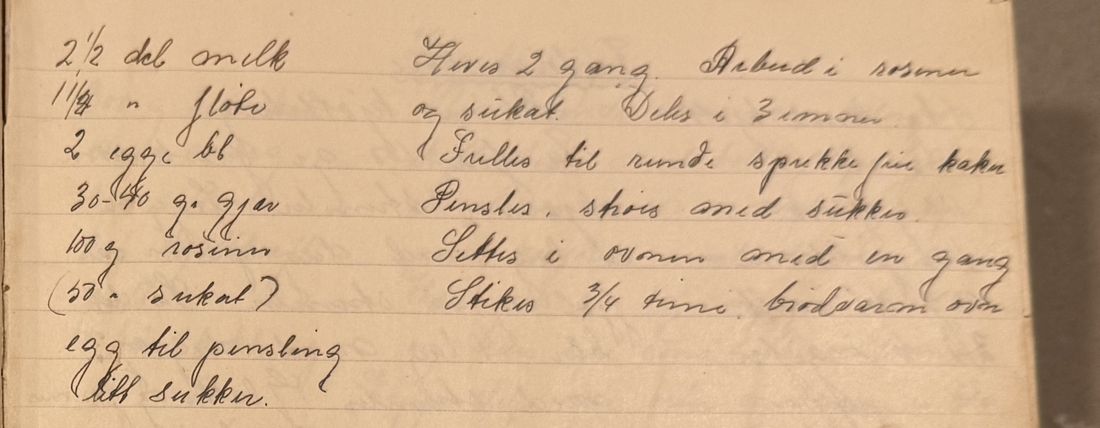 2 1/2 del melk
1 1/4 " fløte
2 egge bl
30-40 g. gjær
100 g rosiner
(50 " sukat)
egg til pensling
litt sukker.
Heves 2 gang. Arbeid i rosiner
og sukat. Deles i 3 emner.
Trilles til runde sprekkefrie kaker
Pensles, strøis med sukker.
Settes i ovnen med en gang
Stekes 3/4 time, brødvarm ovn